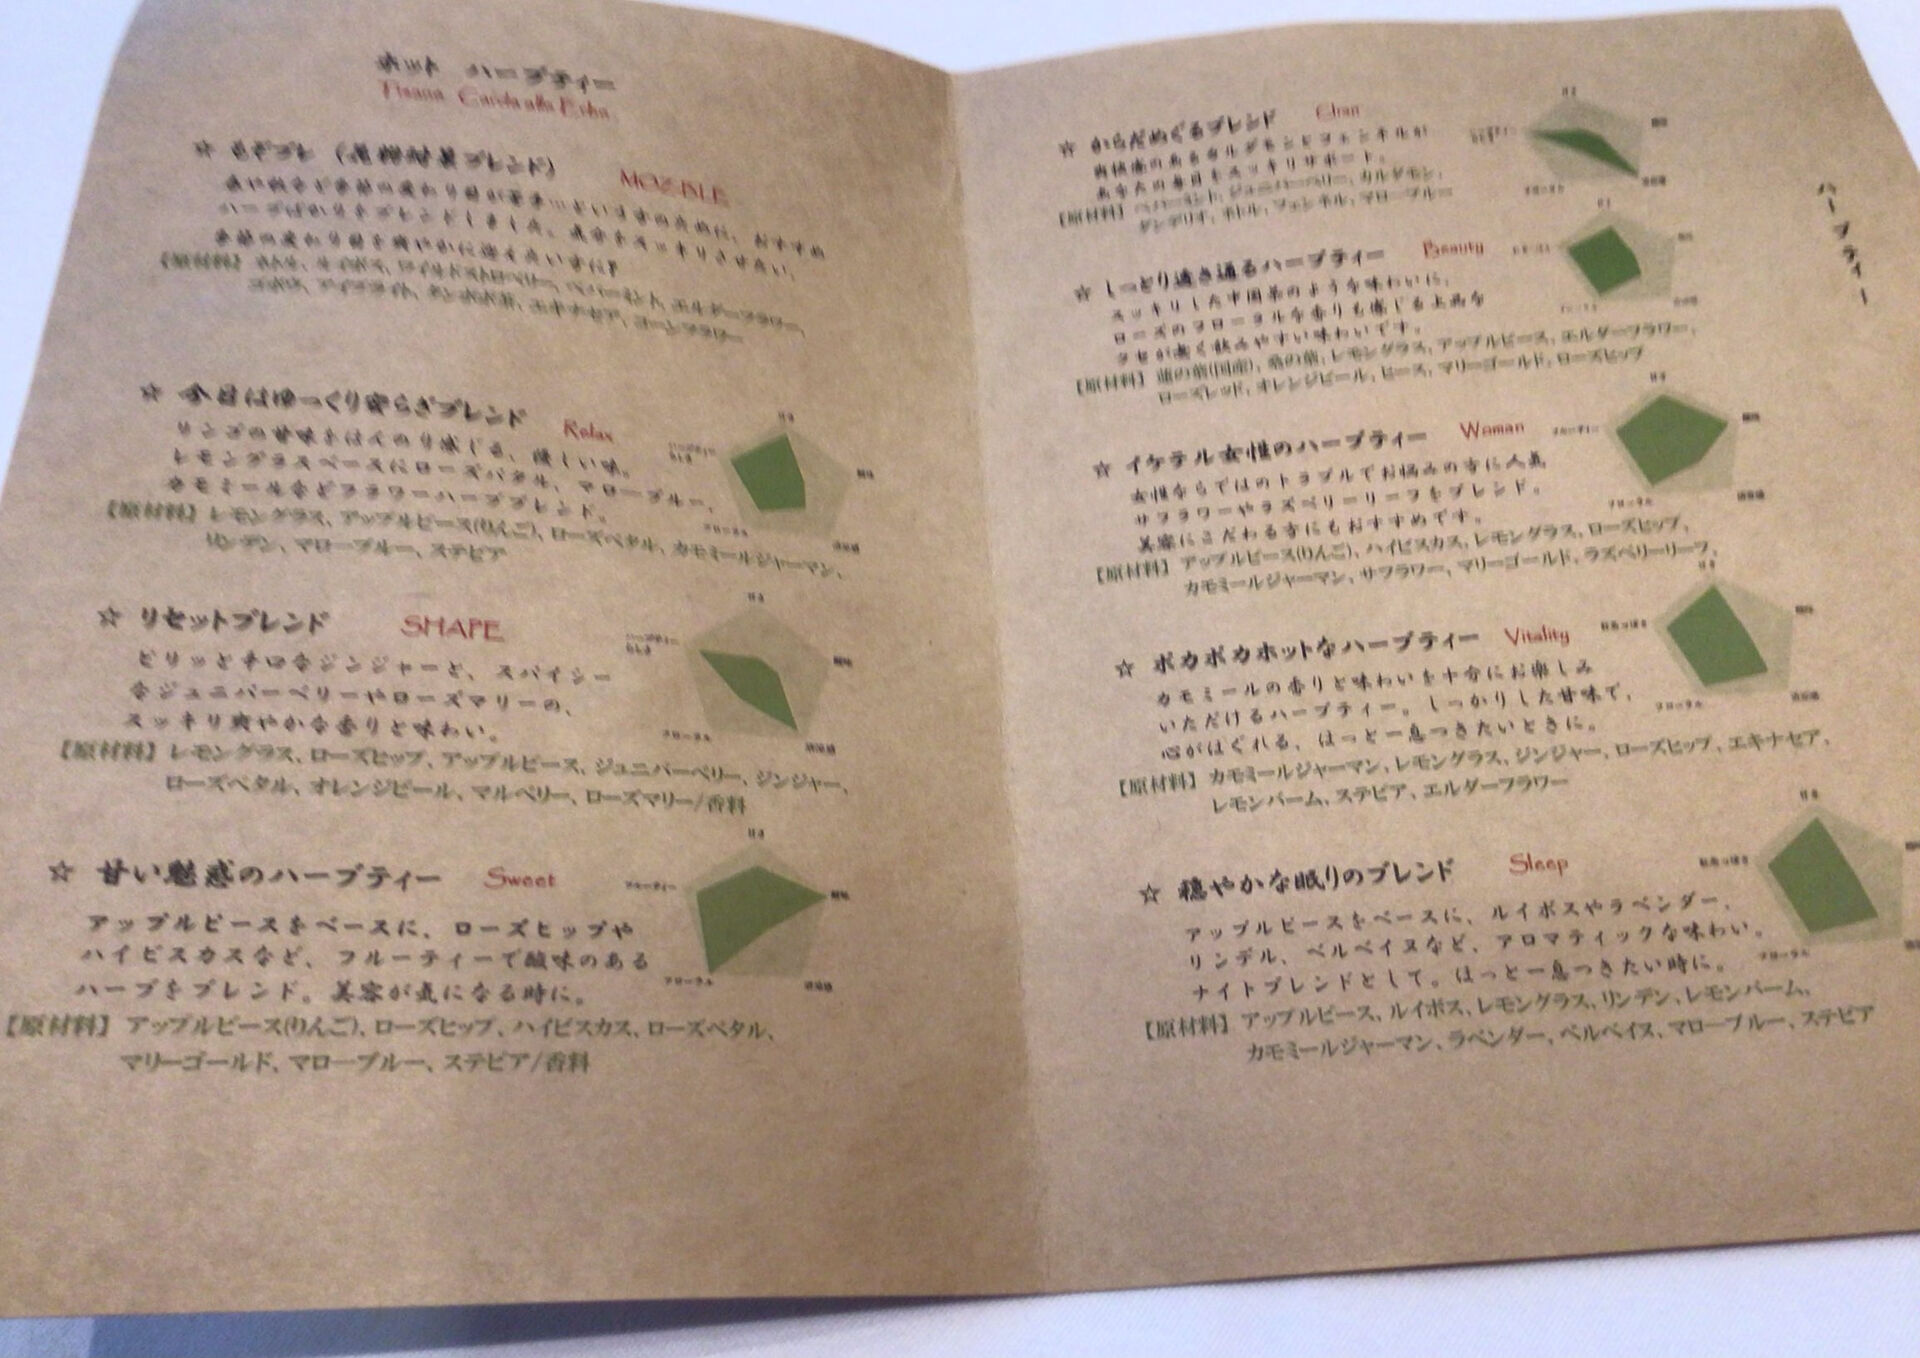 ホット ハーブティー
☆ もざブレ
MOZ-BLE
ハーブばかりをブレンドしました。気分をスッキリさせたい、
【原材料】ネトル、ルイボス、ワイルドストロベリー、ペパーミント、エルダーフラワー、
ゴボウ、アイブライト、タンポポ根、エキナセア、コーンフラワー
☆ 今日はゆっくり安らぎブレンド Relax
リンゴの甘味をほんのり感じる、優しい味。
レモングラスベースにローズペタル、マローブルー、
カモミールなどフラワーハーブブレンド。
【原材料】レモングラス、アップルピース(りんご)、ローズペタル、カモミールジャーマン、
リンデン、マローブルー、ステビア
甘み
酸味
清涼感
フローラル
☆ リセットブレンド SHAPE
ピリッと辛口なジンジャーと、スパイシー
なジュニパーベリーやローズマリーの、
スッキリ爽やかな香りと味わい。
【原材料】レモングラス、ローズヒップ、アップルピース、ジュニパーベリー、ジンジャー、
ローズペタル、オレンジピール、マルベリー、ローズマリー/香料
甘み
酸味
清涼感
フローラル
☆ 甘い魅惑のハーブティー Sweet
アップルピースをベースに、ローズヒップや
ハイビスカスなど、フルーティーで酸味のある
ハーブをブレンド。美容が気になる時に。
【原材料】アップルピース(りんご)、ローズヒップ、ハイビスカス、ローズペタル、
マリーゴールド、マローブルー、ステビア/香料
甘み
フルーティー
酸味
フローラル
清涼感
☆ からだめぐるブレンド
あなたの毎日をスッキリサポート。
【原材料】ペパーミント、ジュニパーベリー、カルダモン、
ダンデリオ、ネトル、フェンネル、マローブルー
☆ しっとり透き通るハーブティー Beauty
スッキリした中国茶のような味わいに、
ローズのフローラルな香りも感じる上品な
クセが無く飲みやすい味わいです。
【原材料】蓮の葉(国産)、桑の葉、レモングラス、アップルピース、エルダーフラワー、
ローズレッド、オレンジピール、ヒース、マリーゴールド、ローズヒップ
☆ イケテル女性のハーブティー Woman
女性ならではのトラブルでお悩みの方に人気
サフラワーやラズベリーリーフをブレンド。
美容にこだわる方にもおすすめです。
【原材料】アップルピース(りんご)、ハイビスカス、レモングラス、ローズヒップ、
カモミールジャーマン、サフラワー、マリーゴールド、ラズベリーリーフ、
甘み
フルーティー
酸味
フローラル
清涼感
☆ ポカポカホットなハーブティー Vitality
カモミールの香りと味わいを十分にお楽しみ
いただけるハーブティー。しっかりした甘味で、
心がほぐれる、ほっと一息つきたいときに。
【原材料】カモミールジャーマン、レモングラス、ジンジャー、ローズヒップ、エキナセア、
レモンバーム、ステビア、エルダーフラワー
甘み
酸味
フローラル
清涼感
☆ 穏やかな眠りのブレンド Sleep
アップルピースをベースに、ルイボスやラベンダー、
リンデル、ベルベイヌなど、アロマティックな味わい。
ナイトブレンドとして。ほっと一息つきたい時に。
【原材料】アップルピース、ルイボス、レモングラス、リンデン、レモンバーム、
カモミールジャーマン、ラベンダー、ベルベイヌ、マローブルー、ステビア
甘み
フローラル
ハーブティー